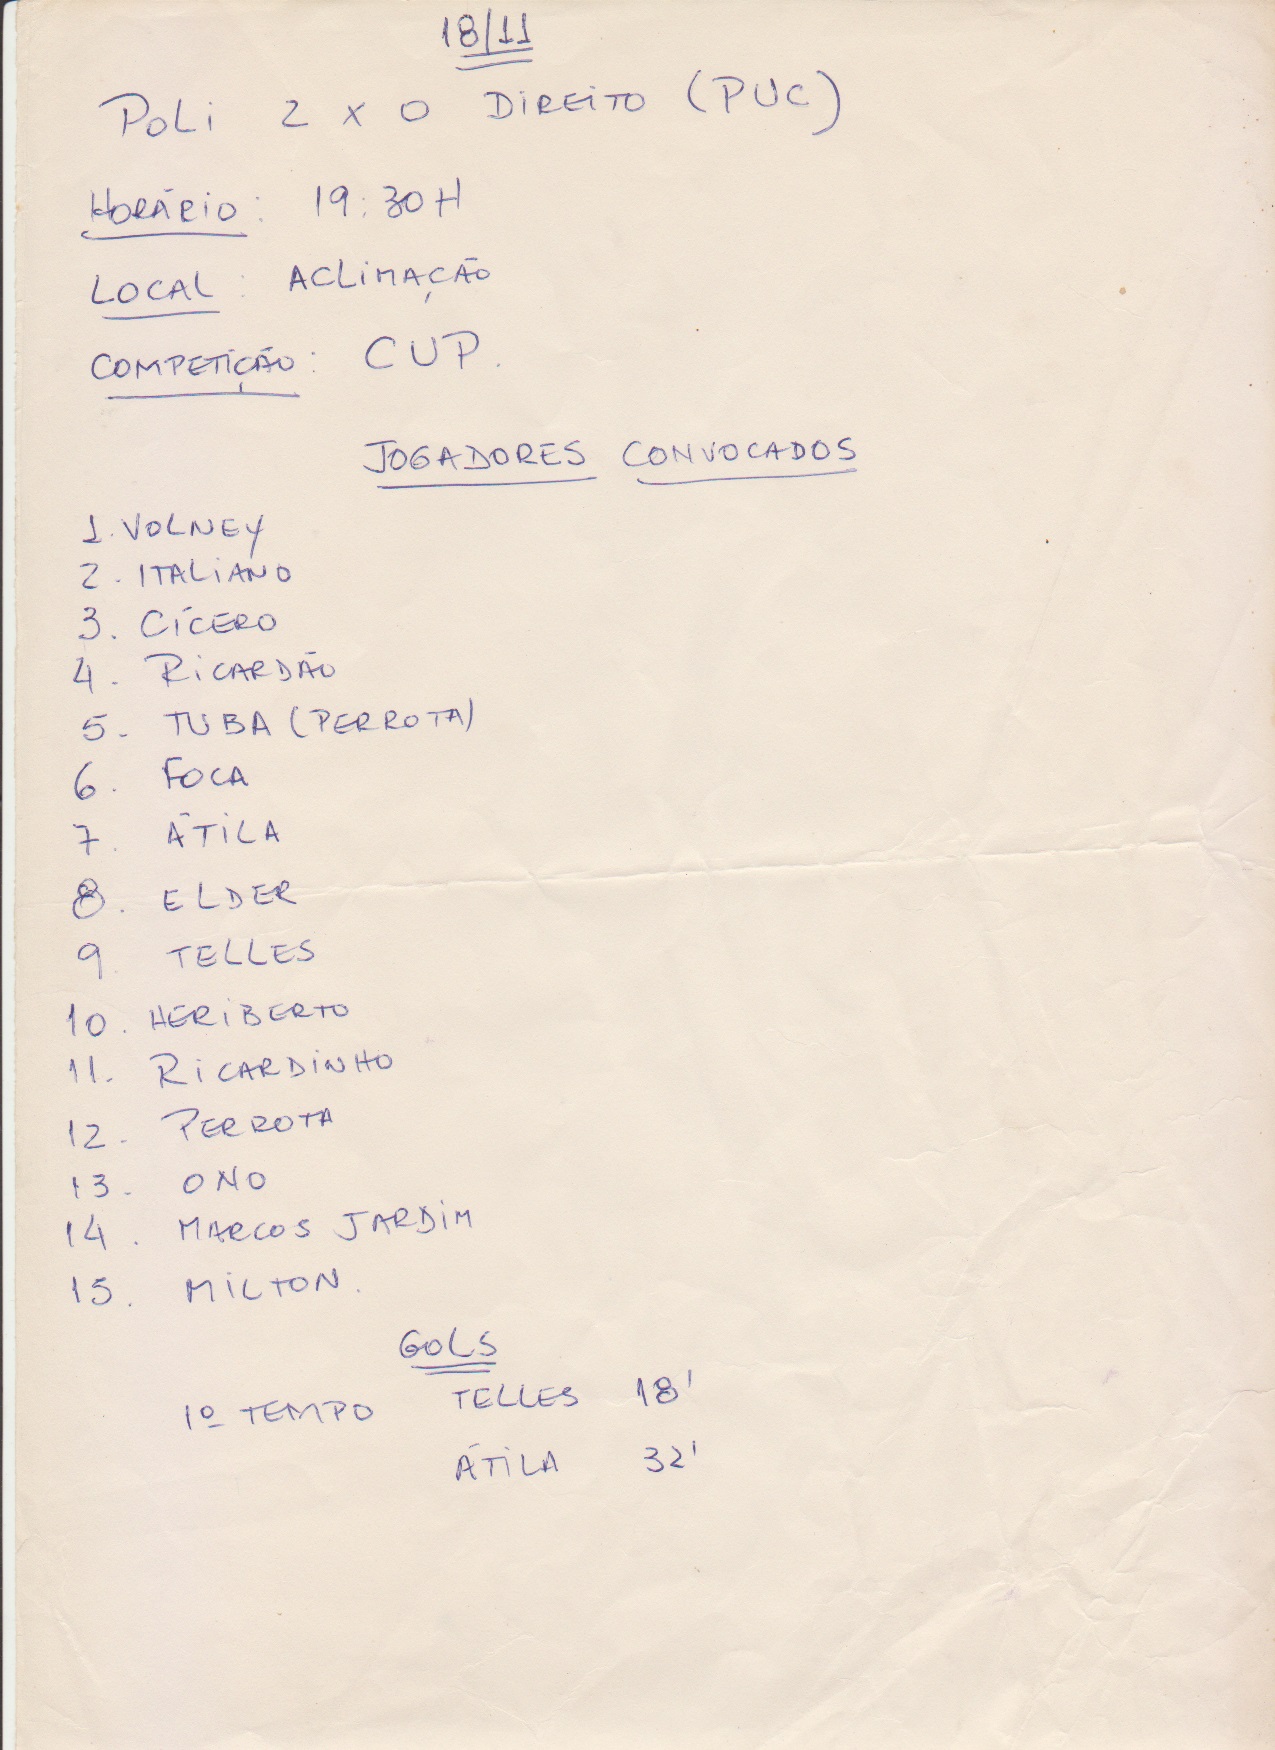 18/11
POLI 2 X 0 DIREITO (PUC)
HORÁRIO: 19:30H
LOCAL: ACLIMAÇÃO
COMPETIÇÃO: CUP.
JOGADORES CONVOCADOS
1. VOLNEY
2. ITALIANO
3. CÍCERO
4. RICARDÃO
5. TUBA (PERROTA)
6. FOCA
7. ÁTILA
8. ELDER
9. TELLES
10. HERIBERTO
11. RICARDINHO
12. PERROTA
13. ONO
14. MARCOS JARDIM
15. MILTON.
GOLS
1º TEMPO TELLES 18'
ÁTILA 32'